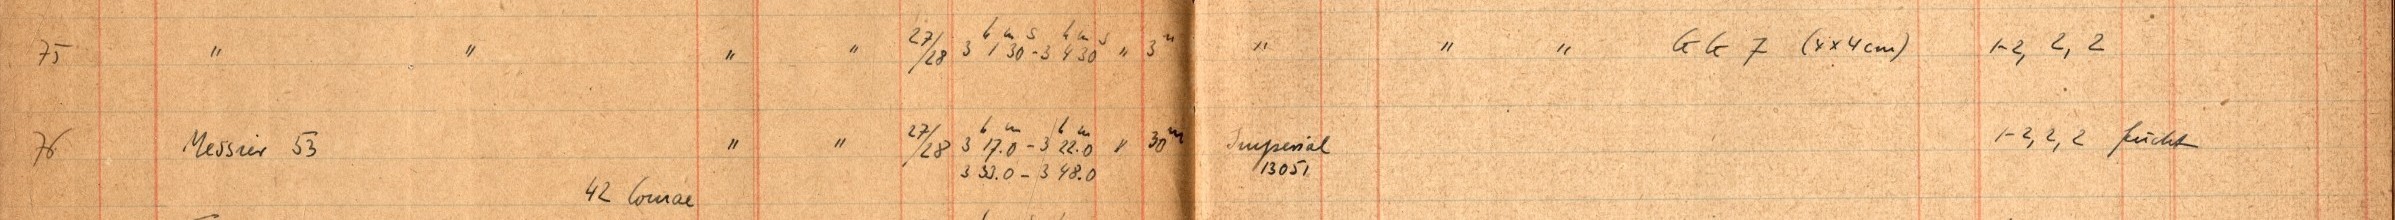 75 " " " " 27/28 3h 1m 30s - 3h 4m 30s " 3m " " " GG 7 (4x4cm) 1-2, 2, 2
76 Messier 53 " " 27/28 3h 17m.0 - 3h 22m.0 " 30m Imperial 1-2, 2, 2 feucht
3 33.0 - 3 48.0 13051
42 Comae